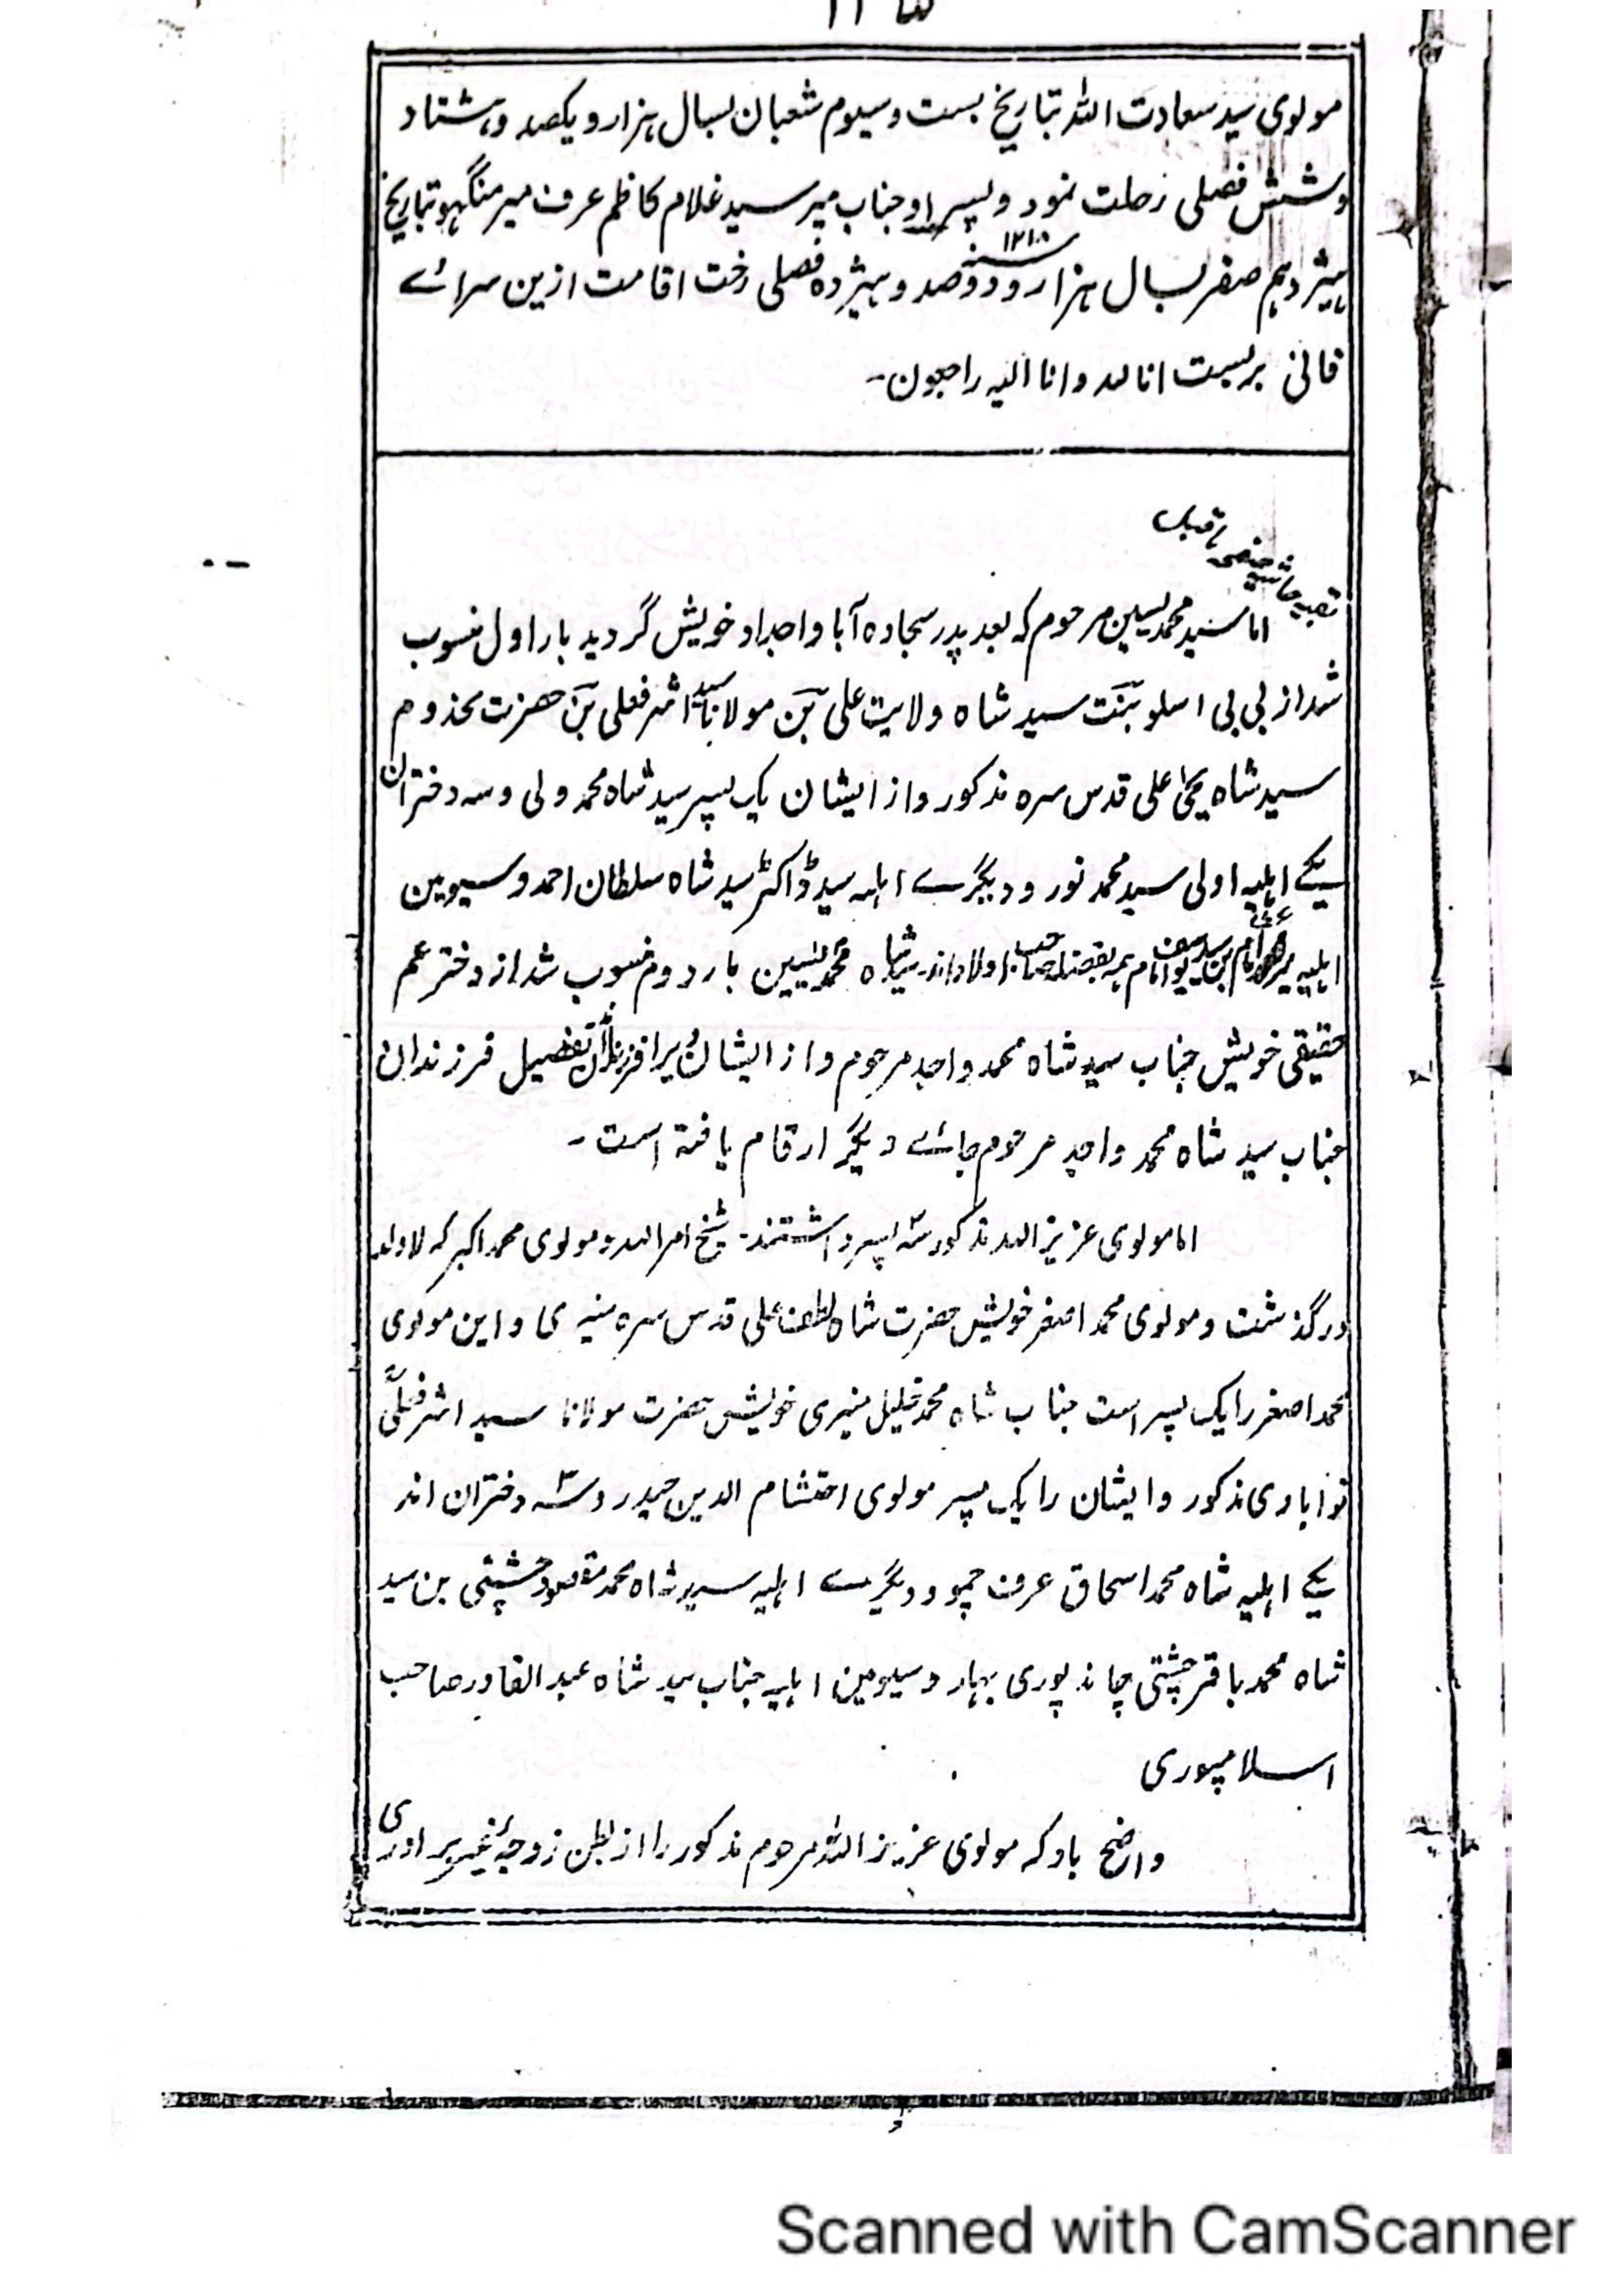 مولوی سید سعادت اللہ بتاریخ بست وسیوم شعبان بسال ہزار و یکصد وہشتاد
وشش فصلی رحلت نمود وپسر او جناب میر سید غلام کاظم عرف میر منگہو بتاریخ
ہیژدہم صفر بسال ہزار و دوصد و ہیژدہ فصلی رخت اقامت ازین سرائے
سنہ ۱۲۱۸
فانی بربست انا للہ وانا الیہ راجعون۔
اما سید محمد یسین مرحوم کہ بعد پدر سجادہ آبا و اجداد خویش گردید بار اول منسوب
شد از بی بی اسلو بنت سید شاہ ولایت علی بن مولانا سید اشرفعلی بن حضرت مخدوم
سید شاہ یحیٰ علی قدس سرہ مذکور و از ایشان یک پسر سید شاہ محمد ولی وسہ دختران
یکے اہلیہ اولی سید محمد نور و دیگرے اہلیہ سید ڈاکٹر سید شاہ سلطان احمد و سیومین
اہلیہ ہمہ بفضلہ صاحب اولاد اند۔ شاہ محمد یٰسین بار دوم منسوب شد از دختر عم
حقیقی خویش جناب سید شاہ محمد واجد مرحوم و از ایشان تفصیل فرزندان
جناب سید شاہ محمد واجد مرحوم جائے دیگر ارقام یافتہ است۔
اما مولوی عزیز اللہ مذکور سہ پسر داشتند۔ شیخ امر اللہ و مولوی محمد اکبر کہ لاولد
درگذشت و مولوی محمد اصغر خویش حضرت شاہ لطف علی قدس سرہ منیری و این مولوی
محمد اصغر را یک پسر است جناب شاہ محمد خلیل منیری خویش حضرت مولانا سید اشرفعلی
نوابادی مذکور و ایشان را یک پسر مولوی احتشام الدین حیدر و سہ دختران اند
یکے اہلیہ شاہ محمد اسحاق عرف چمو و دیگرے اہلیہ سید شاہ محمد مقصود چشتی بن سید
شاہ محمد باقر چشتی چاند پوری بہار و سیومین اہلیہ جناب سید شاہ عبد القادر صاحب
اسلامپوری
واضح باد کہ مولوی عزیز اللہ مرحوم مذکور را از بطن زوجہٴ غیر برادری
Scanned with CamScanner